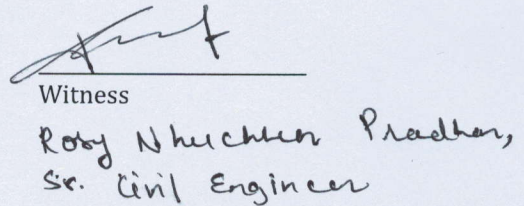 Witness
Rosy Nhuchhen Pradhan,
Sr. Civil Engineer